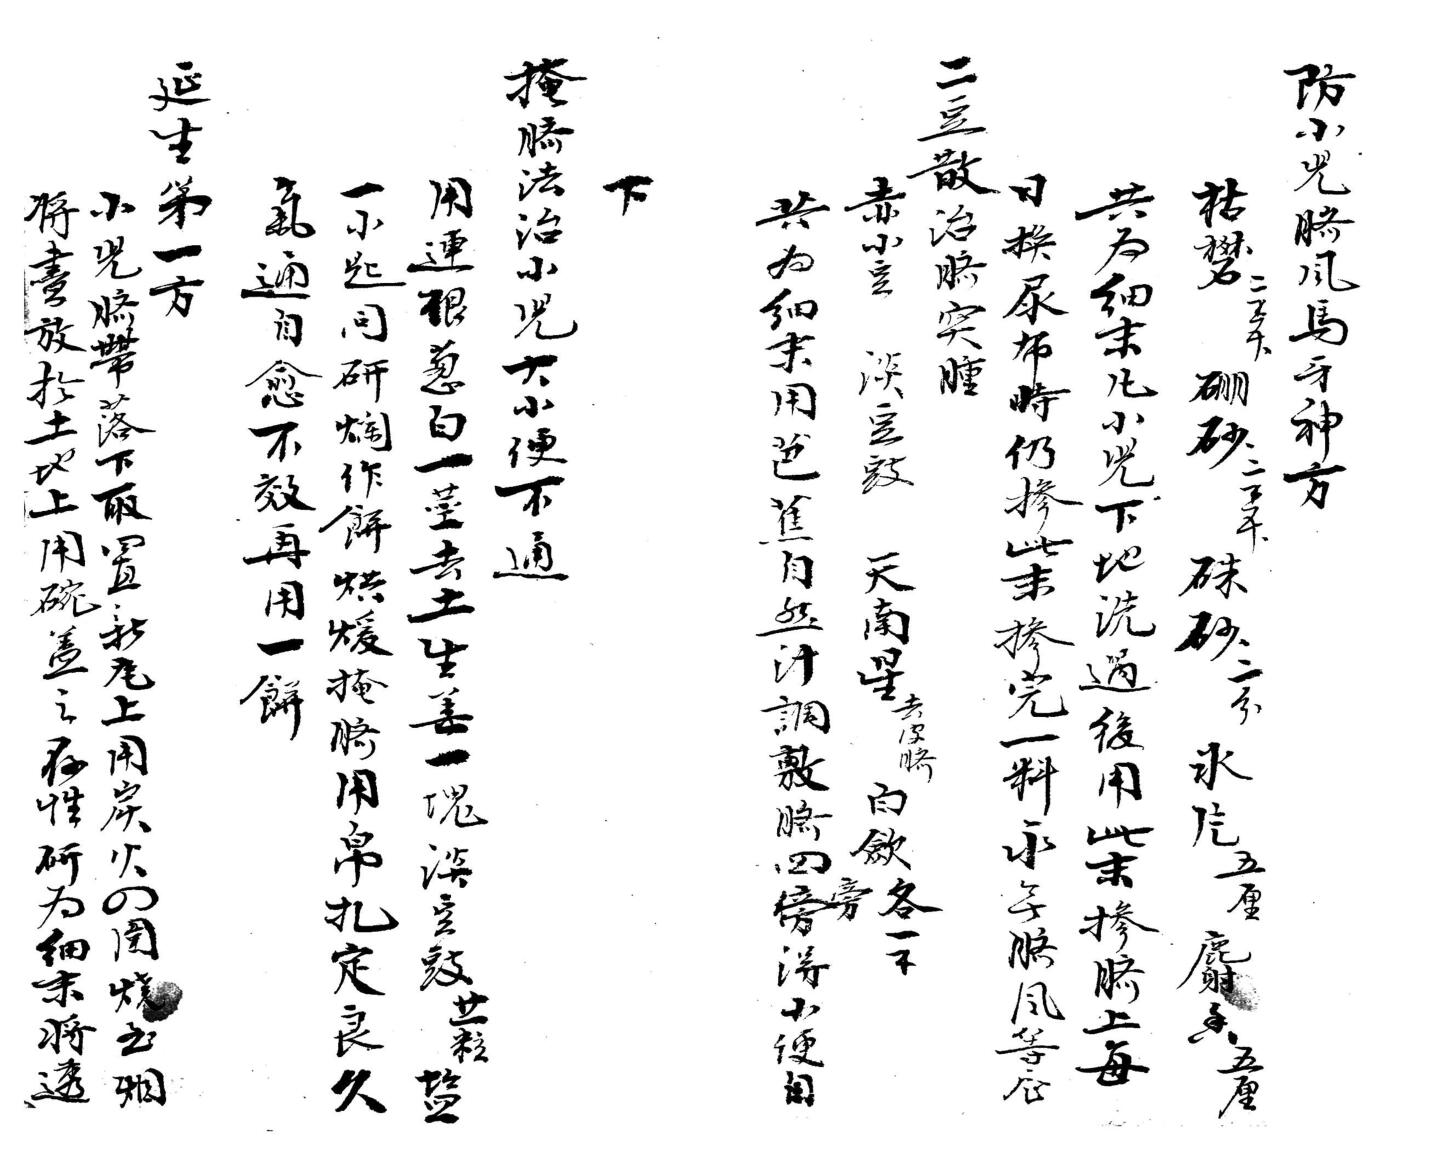 防小児臍風馬牙神方
枯礬二錢半 硼砂二錢半 硃砂二分 氷片五厘 麝香五厘
共为細末凡小児下地洗過後用此末掺臍上每
日換尿布時仍掺此末掺完一料永無臍風等症
二豆散治臍突腫
赤小豆 淡豆豉 天南星去皮臍 白斂各一錢
共为細末用芭蕉自然汁調敷臍四傍得小便自
傍
下
掩臍法治小児大小便不通
用連根葱白一莖去土生姜一塊淡豆豉廿一粒塩
一小匙同研爛作餅烘煖掩臍用帛扎定良久
氣通自愈不效再用一餅
延生第一方
小児臍帶落下取置新瓦上用炭火四圍燒至烟
將盡放於土地上用碗蓋之存性研为細末將透